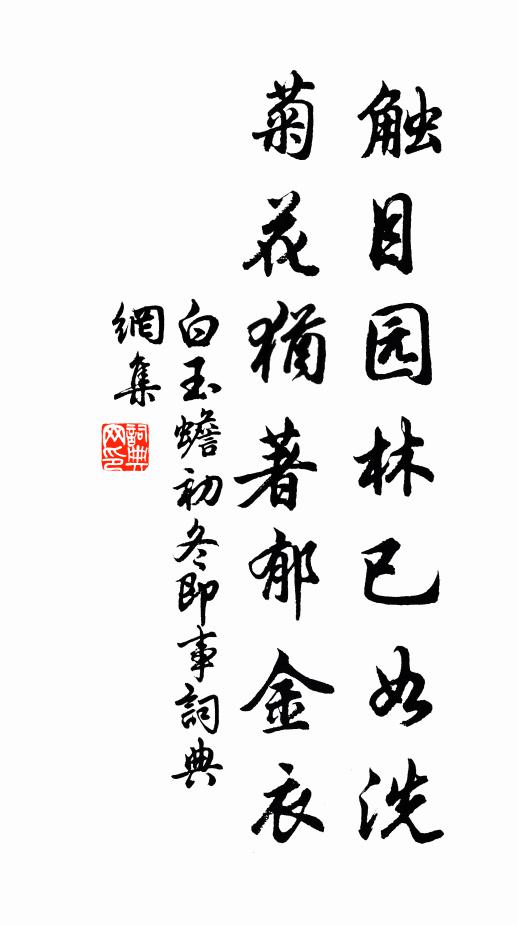 触目园林已如洗
菊花猶著郁金衣
白玉蟾初冬即事詞典
網集
詞典网印